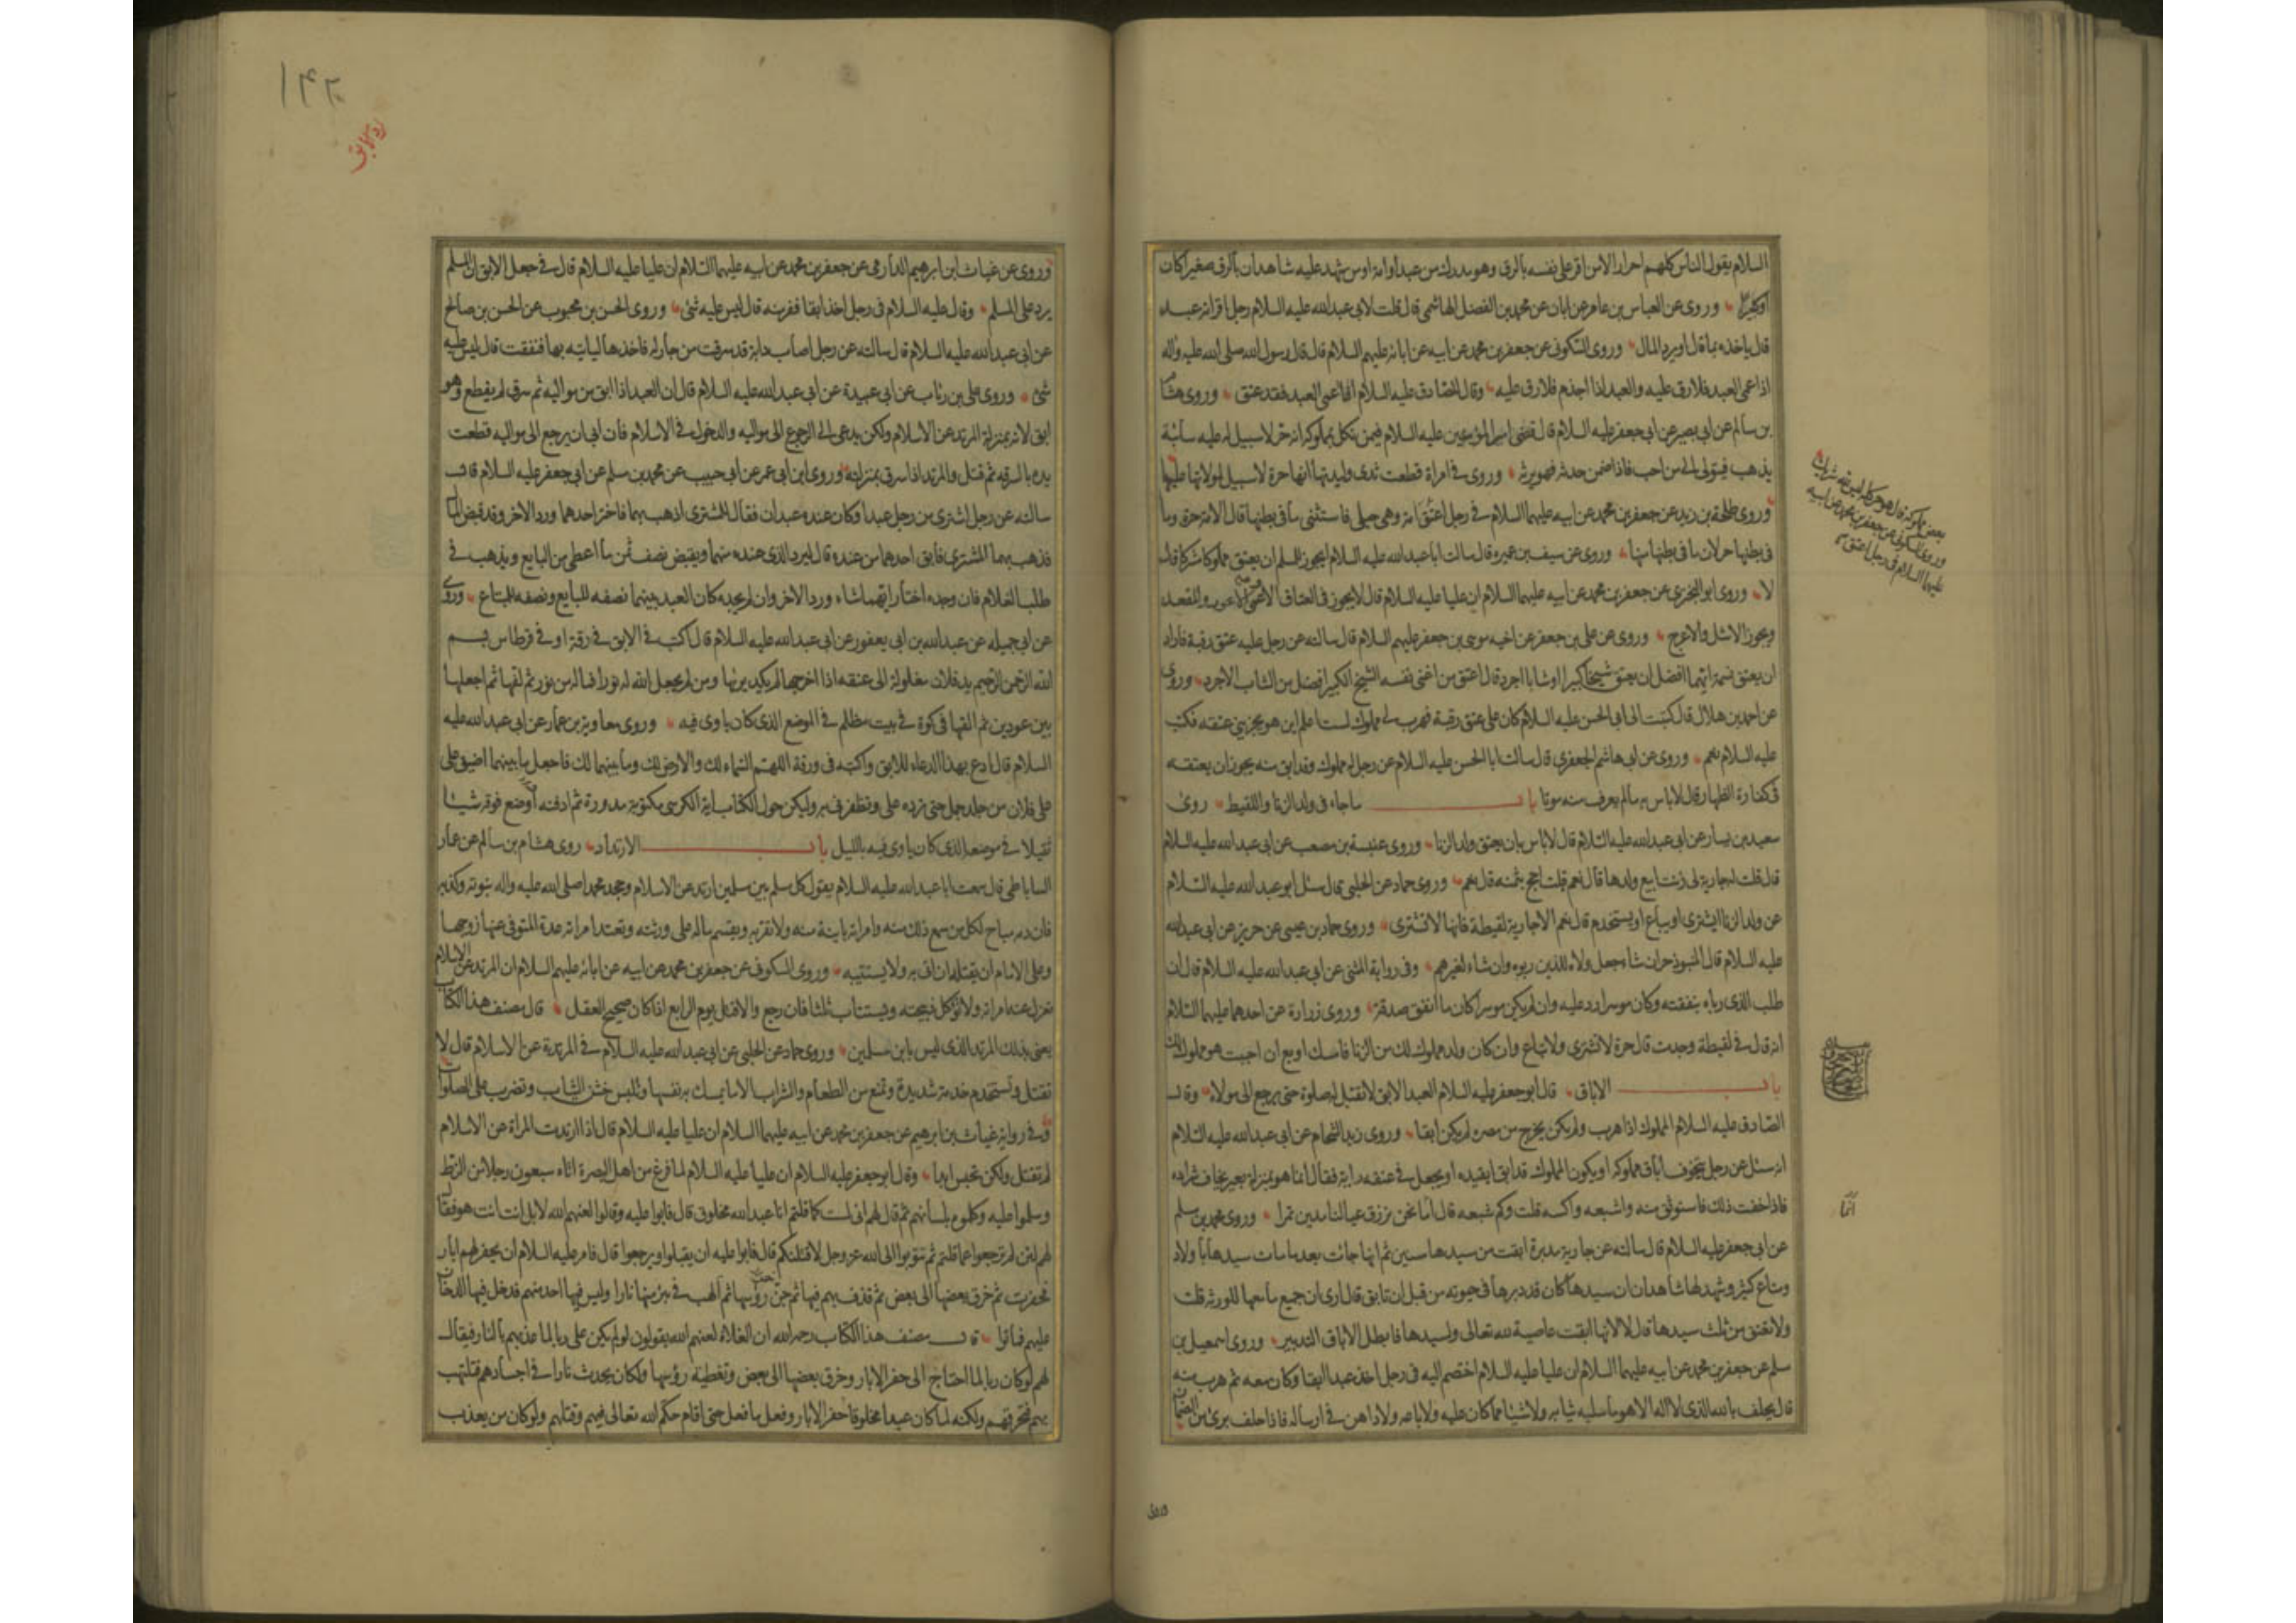 السلام يقول الناس كلهم احرار الا من اقر على نفسه بالرق وهو مدرك من عبد او امة او من شهد عليه شاهدان بالرق صغيرا كان
او كبيرا وروى عن العباس بن عامر عن ابان عن محمد بن الفضل الهاشمى قال قلت لابى عبد الله عليه السلام رجل اقر انه عبد
قال ياخذه بما قال او يرد المال وروى السكونى عن جعفر بن محمد عن ابيه عن ابائه عليهم السلام قال قال رسول الله صلى الله عليه واله
اذا عمى العبد فلا رق عليه والعبد اذا اجذم فلا رق عليه وقال الصادق عليه السلام اذا عمى العبد فقد عتق وروى هشام
بن سالم عن ابى بصير عن ابى جعفر عليه السلام قال قضى امير المؤمنين عليه السلام فيمن نكل بمملوكه انه حر لا سبيل له عليه سائبة
يذهب فيتولى الى من احب فاذا ضمن حدثه فهو يرثه وروى فى امراة قطعت ثدى وليدتها انها حرة لا سبيل لمولاتها عليها
وروى طلحة بن زيد عن جعفر بن محمد عن ابيه عليهما السلام فى رجل اعتق امة وهى حبلى فاستثنى ما فى بطنها قال الامة حرة وما
فى بطنها حر لان ما فى بطنها منها وروى عن سيف بن عميرة قال سالت ابا عبد الله عليه السلام ايجوز للمسلم ان يعتق مملوكا مشركا قال
لا وروى ابو البخترى عن جعفر بن محمد عن ابيه عليهما السلام ان عليا عليه السلام قال لا يجوز فى العتاق الاعمى والاعور والمقعد
ويجوز الاشل والاعرج وروى عن على بن جعفر عن اخيه موسى بن جعفر عليهم السلام قال سالته عن رجل عليه عتق رقبة فاراد
ان يعتق نسمة ايهما افضل ان يعتق شيخا كبيرا او شابا اجرد قال اعتق من اغنى نفسه الشيخ الكبير افضل من الشاب الاجرد وروى
عن احمد بن هلال قال كتبت الى ابى الحسن عليه السلام كان على عتق رقبة فهرب لى مملوك لست اعلم اين هو يجزينى عتقه فكتب
عليه السلام نعم وروى عن ابى هاشم الجعفرى قال سالت ابا الحسن عليه السلام عن رجل له مملوك وقد ابق منه يجوز ان يعتقه
فى كفارة الظهار قال لا باس به ما لم يعرف منه موتا باب ما جاء فى ولد الزنا واللقيط روى
سعيد بن يسار عن ابى عبد الله عليه السلام قال لا باس بان يعتق ولد الزنا وروى عنبسة بن مصعب عن ابى عبد الله عليه السلام
قال قلت له جارية لى زنت ابيع ولدها قال نعم قلت احج بثمنه قال نعم وروى حماد عن الحلبى قال سئل ابو عبد الله عليه السلام
عن ولد الزنا ايشترى او يباع او يستخدم قال نعم الا جارية لقيطة فانها لا تشترى وروى حماد بن عيسى عن حريز عن ابى عبد الله
عليه السلام قال المنبوذ حر ان شاء جعل ولاءه للذين ربوه وان شاء لغيرهم وفى رواية المثنى عن ابى عبد الله عليه السلام قال ان
طلب الذى رباه بنفقته وكان موسرا رد عليه وان لم يكن موسرا كان ما انفق صدقة وروى زرارة عن احدهما عليهما السلام
انه قال فى لقيطة وجدت قال حرة لا تشترى ولا تباع وان كان ولد مملوك لك من الزنا فامسك او بع ان احببت هو مملوك لك
باب الاباق قال ابو جعفر عليه السلام العبد الابق لا تقبل له صلوة حتى يرجع الى مولاه وقال
الصادق عليه السلام المملوك اذا هرب ولم يكن يخرج من مصره لم يكن ابقا وروى زيد الشحام عن ابى عبد الله عليه السلام
انه سئل عن رجل يتخوف اباق مملوكه او يكون المملوك قد ابق ايقيده او يجعل فى عنقه راية فقال انما هو بمنزلة بعير يخاف شراده
فاذا خفت ذلك فاستوثق منه واشبعه واكسه قلت وكم شبعه قال اما نحن نرزق عيالنا مدين تمرا وروى محمد بن مسلم
عن ابى جعفر عليه السلام قال سالته عن جارية مدبرة ابقت من سيدها سنين ثم انها جائت بعد ما مات سيدها باولاد
ومتاع كثير وشهد لها شاهدان ان سيدها كان قد دبرها فى حيوته من قبل ان تابق قال ارى ان جميع ما معها للورثة قلت
ولا تعتق من ثلث سيدها قال لا لانها ابقت عاصية لله تعالى ولسيدها فابطل الاباق التدبير وروى اسمعيل بن
مسلم عن جعفر بن محمد عن ابيه عليهما السلام ان عليا عليه السلام اختصم اليه فى رجل اخذ عبدا ابقا وكان معه ثم هرب منه
قال يحلف بالله الذى لا اله الا هو ما سلبه ثيابه ولا شيئا مما كان عليه ولا باعه ولا داهن فى ارساله فاذا حلف برئ من الضمان
بعض مملوكه قال هو حر كله ليس لله شريك
وروى السكونى عن جعفر بن محمد عن ابيه
عليهما السلام فى رجل اعتق
انما
وروى
١٤٢
وروى عن غياث ابن ابرهيم الدارمى عن جعفر بن محمد عن ابيه عليهما السلام ان عليا عليه السلام قال فى جعل الابق ان المسلم
يرد على المسلم وقال عليه السلام فى رجل اخذ ابقا ففر منه قال ليس عليه شئ وروى الحسن بن محبوب عن الحسن بن صالح
عن ابى عبد الله عليه السلام قال سالته عن رجل اصاب دابة قد سرقت من جار له فاخذها لياتيه بها فنفقت قال ليس عليه
شئ وروى على بن رئاب عن ابى عبيدة عن ابى عبد الله عليه السلام قال ان العبد اذا ابق من مواليه ثم سرق لم يقطع وهو
ابق لانه بمنزلة المرتد عن الاسلام ولكن يدعى الى الرجوع الى مواليه والدخول فى الاسلام فان ابى ان يرجع الى مواليه قطعت
يده بالسرقة ثم قتل والمرتد اذا سرق بمنزلته وروى ابن ابى عمير عن ابى حبيب عن محمد بن مسلم عن ابى جعفر عليه السلام قال
سالته عن رجل اشترى من رجل عبدا وكان عنده عبدان فقال للمشترى اذهب بهما فاختر احدهما ورد الاخر وقد قبض المال
فذهب بهما المشترى فابق احدهما من عنده قال ليرد الذى عنده منهما ويقبض نصف ثمن ما اعطى من البايع ويذهب فى
طلب الغلام فان وجده اختار ايهما شاء ورد الاخر وان لم يجده كان العبد بينهما نصفه للبايع ونصفه للمبتاع وروى
عن ابى جميلة عن عبد الله بن ابى يعفور عن ابى عبد الله عليه السلام قال اكتب فى الابق فى رقة او فى قرطاس بسم
الله الرحمن الرحيم يد فلان مغلولة الى عنقه اذا اخرجها لم يكد يريها ومن لم يجعل الله له نورا فما له من نور ثم لفها ثم اجعلها
بين عودين ثم القها فى كوة فى بيت مظلم فى الموضع الذى كان ياوى فيه وروى معاوية بن عمار عن ابى عبد الله عليه
السلام قال ادع بهذا الدعاء للابق واكتبه فى ورقة اللهم السماء لك والارض لك وما بينهما لك فاجعل ما بينهما اضيق على
على فلان من جلد جمل حتى ترده على وتظفرنى به وليكن حول الكتاب اية الكرسى مكتوبة مدورة ثم ادفنه اوضع فوقه شيئا
ثقيلا فى موضعه الذى كان ياوى فيه بالليل باب الارتداد روى هشام بن سالم عن عمار
الساباطى قال سمعت ابا عبد الله عليه السلام يقول كل مسلم بين مسلمين ارتد عن الاسلام وجحد محمدا صلى الله عليه واله نبوته وكذبه
فان دمه مباح لكل من سمع ذلك منه وامراته باينة منه ولا تقربه ويقسم ماله على ورثته وتعتد امراته عدة المتوفى عنها زوجها
وعلى الامام ان يقتله ان اتى به ولا يستتيبه وروى السكونى عن جعفر بن محمد عن ابيه عن ابائه عليهم السلام ان المرتد عن الاسلام
تعزل عنه امراته ولا تؤكل ذبيحته ويستتاب ثلثا فان رجع والا قتل يوم الرابع اذا كان صحيح العقل قال مصنف هذا الكتاب
يعنى بذلك المرتد الذى ليس بابن مسلمين وروى حماد عن الحلبى عن ابى عبد الله عليه السلام فى المرتدة عن الاسلام قال لا
تقتل وتستخدم خدمة شديدة وتمنع من الطعام والشراب الا ما تمسك به نفسها وتلبس خشن الثياب وتضرب على الصلوات
وفى رواية غياث بن ابرهيم عن جعفر بن محمد عن ابيه عليهما السلام ان عليا عليه السلام قال اذا ارتدت المراة عن الاسلام
لم تقتل ولكن تحبس ابدا وقال ابو جعفر عليه السلام ان عليا عليه السلام لما فرغ من اهل البصرة اتاه سبعون رجلا من الزط
وسلموا عليه وكلموه بلسانهم ثم قال لهم انى لست كما قلتم انا عبد الله مخلوق قال فابوا عليه وقالوا لعنهم الله لا بل انت انت هو فقال
لهم لئن لم ترجعوا عما قلتم ثم تتوبوا الى الله عز وجل لاقتلنكم قال فابوا عليه ان يقبلوا ويرجعوا قال فامر عليه السلام ان يحفر لهم ابار
فحفرت ثم خرق بعضها الى بعض ثم قذف بهم فيها ثم جن رؤسها ثم الهب فى بئر منها نارا وليس فيها احد منهم فدخل فيها الدخان
عليهم فماتوا قال مصنف هذا الكتاب رحمه الله ان الغلاة لعنهم الله يقولون لو لم يكن على ربا لما عذبهم بالنار فيقال
لهم لو كان ربا لما احتاج الى حفر الابار وخرق بعضها الى بعض وتغطية رؤسها ولكان يحدث نارا فى اجسادهم فتلتهب
بهم فتحرقهم ولكنه لما كان عبدا مخلوقا حفر الابار وفعل ما فعل حتى اقام حكم الله تعالى فيهم وقتلهم ولو كان من يعذب